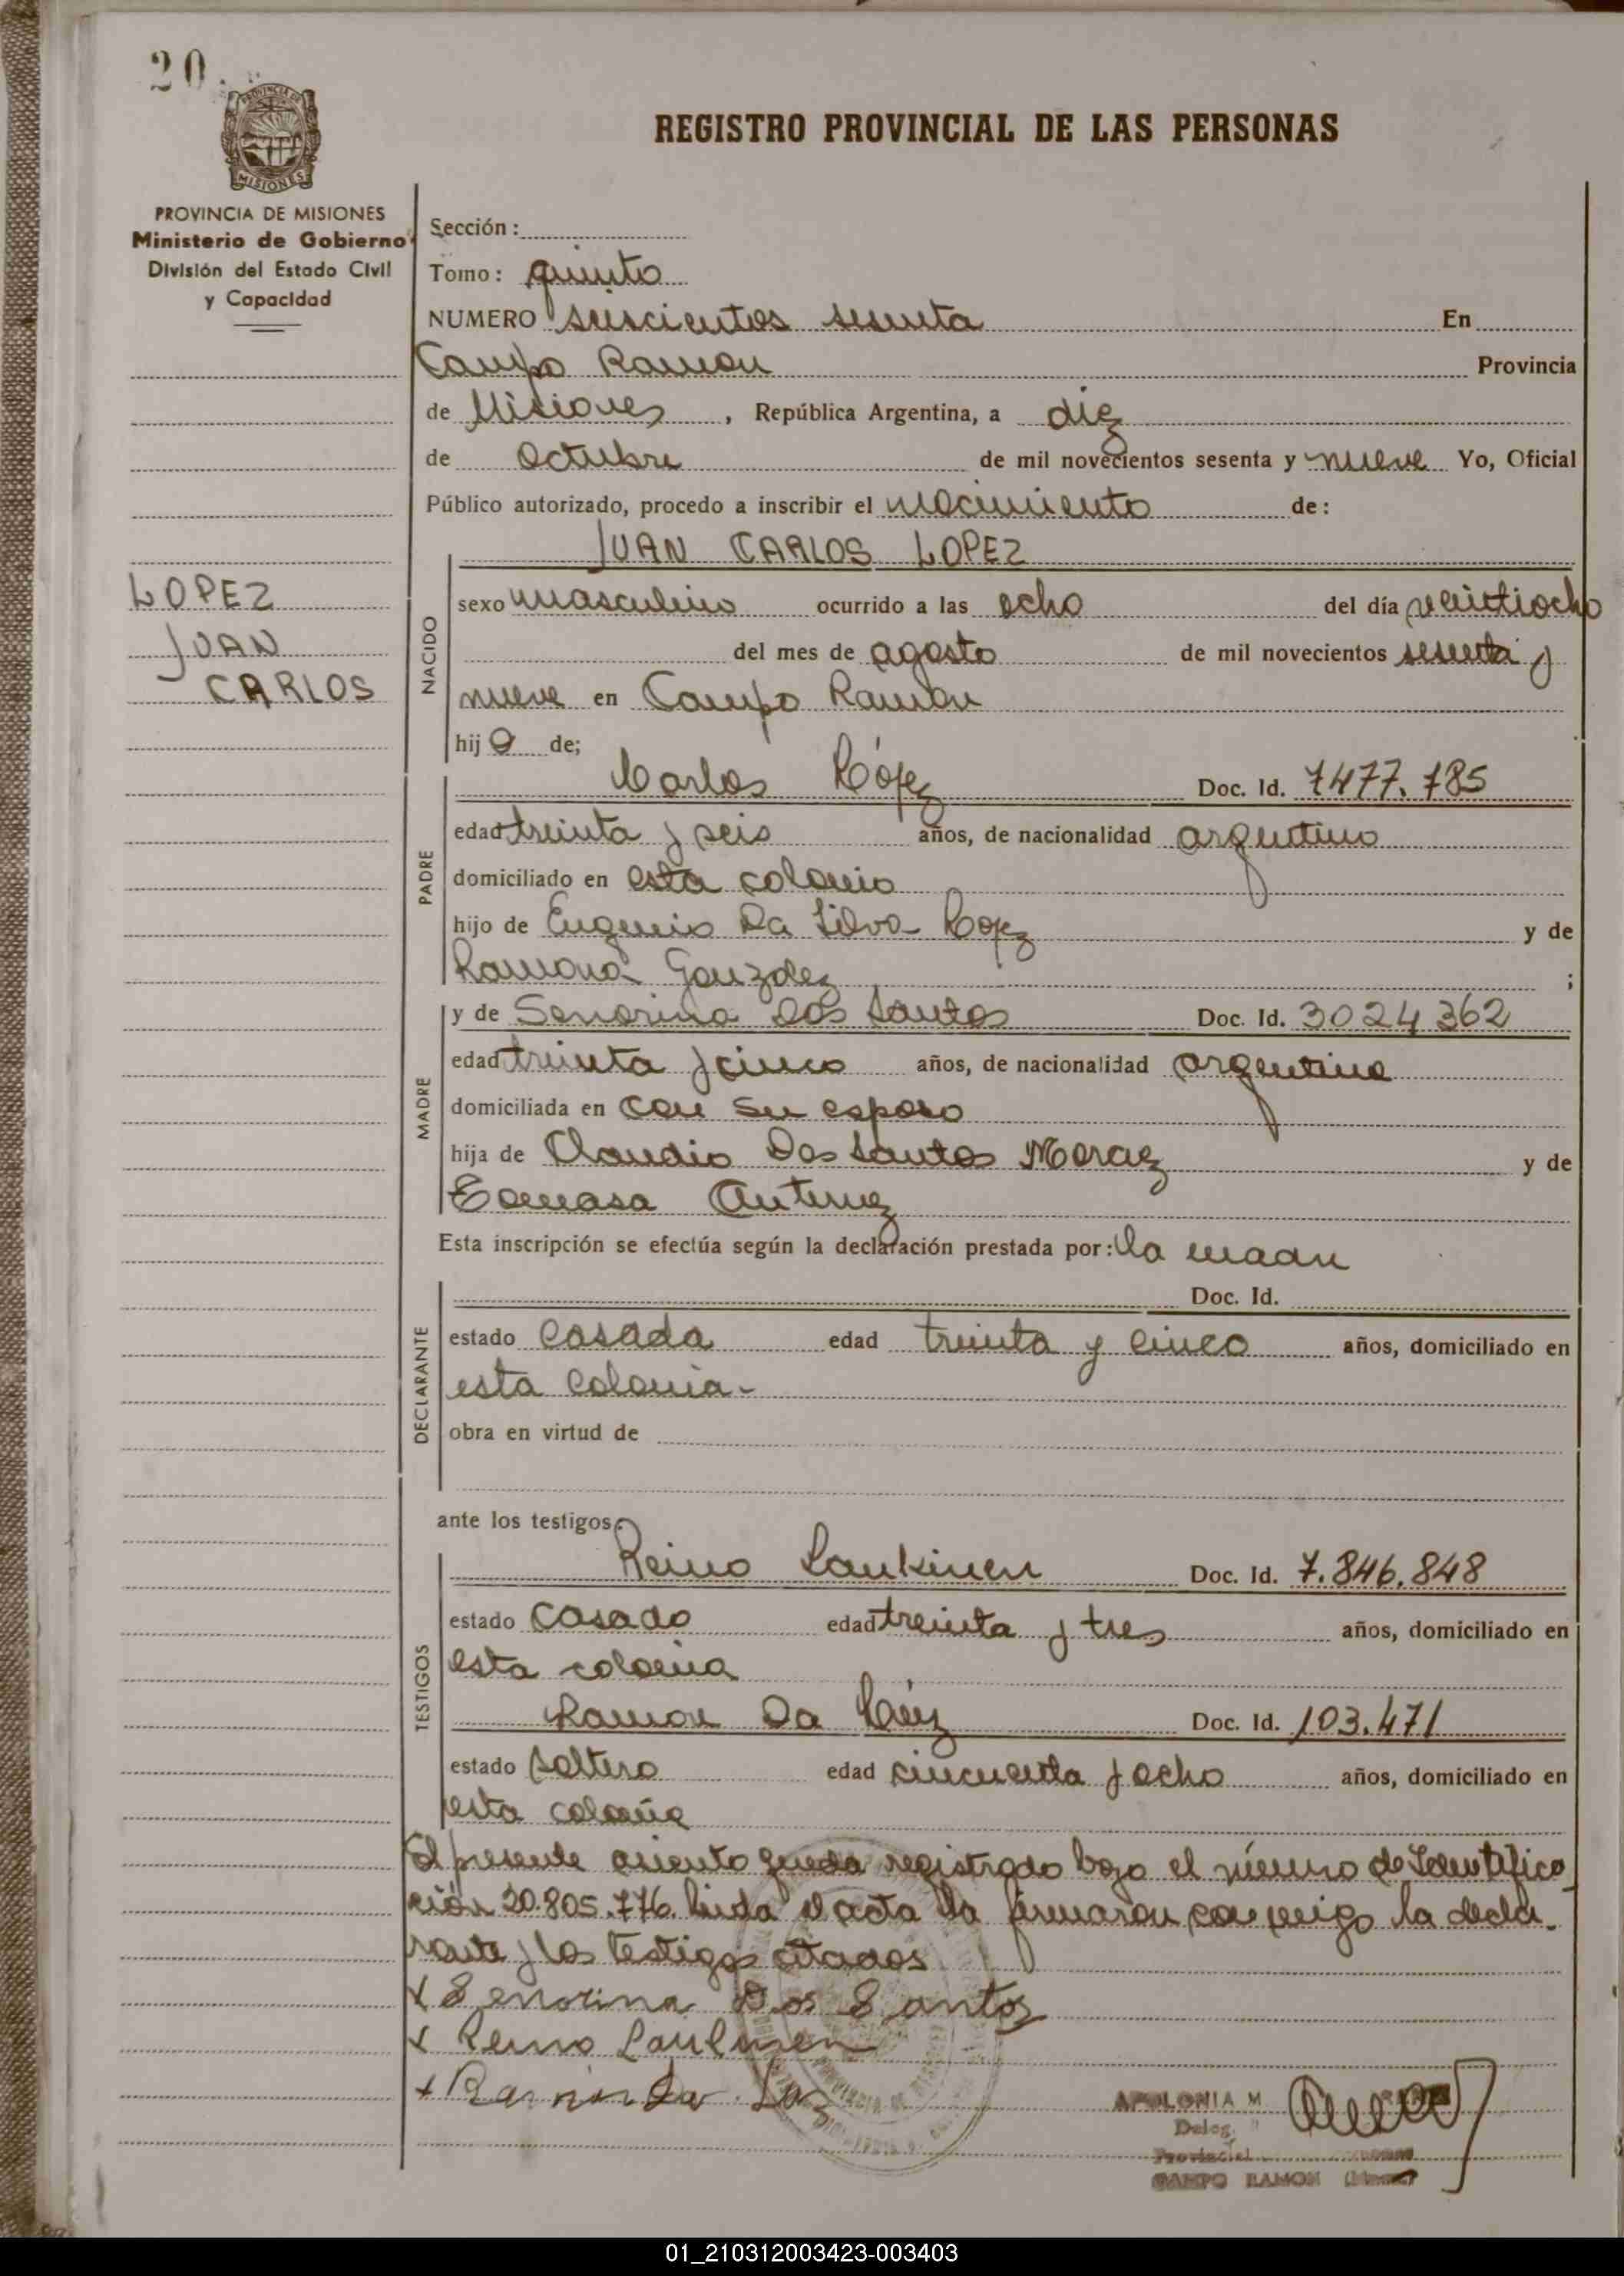 20.
PROVINCIA DE
MISIONES
REGISTRO PROVINCIAL DE LAS PERSONAS
PROVINCIA DE MISIONES
Ministerio de Gobierno
División del Estado Civil
y Capacidad
Sección:
Tomo: quinto
NUMERO seiscientos sesenta En
Campo Ramon Provincia
de Misiones, República Argentina, a diez
de Octubre de mil novecientos sesenta y nueve Yo, Oficial
Público autorizado, procedo a inscribir el nacimiento de:
JUAN CARLOS LOPEZ
LOPEZ
JUAN
CARLOS
NACIDO
sexo masculino ocurrido a las ocho del día veintiocho
del mes de agosto de mil novecientos sesenta y
nueve en Campo Ramon
hijo de;
PADRE
Carlos López Doc. Id. 7477.785
edad treinta y seis años, de nacionalidad argentino
domiciliado en esta colonia
hijo de Eugenio Da Silva Lopez y de
Ramona Gonzalez ;
MADRE
y de Senorina Dos Santos Doc. Id. 3024362
edad treinta y cinco años, de nacionalidad argentina
domiciliada en con su esposo
hija de Claudio Dos Santos Moraez y de
Tomasa Antunez
Esta inscripción se efectúa según la declaración prestada por: la madre
DECLARANTE
Doc. Id.
estado casada edad treinta y cinco años, domiciliado en
esta colonia-
obra en virtud de
ante los testigos:
TESTIGOS
Reino Laukinen Doc. Id. 7.846.848
estado casado edad treinta y tres años, domiciliado en
esta colonia
Ramon Da Doc. Id. 103.471
estado soltero edad cincuenta y ocho años, domiciliado en
esta colonia
El presente asiento queda registrado bajo el número de Identifica
ción 20.805.776. Leida el acta la firmaron conmigo la decla-
rante y los testigos citados
x Senorina Dos Santos
x Reino Laukinen
x Ramon Da Luz
APOLONIA M
Deleg.
Provincial
CAMPO RAMON
01_210312003423-003403